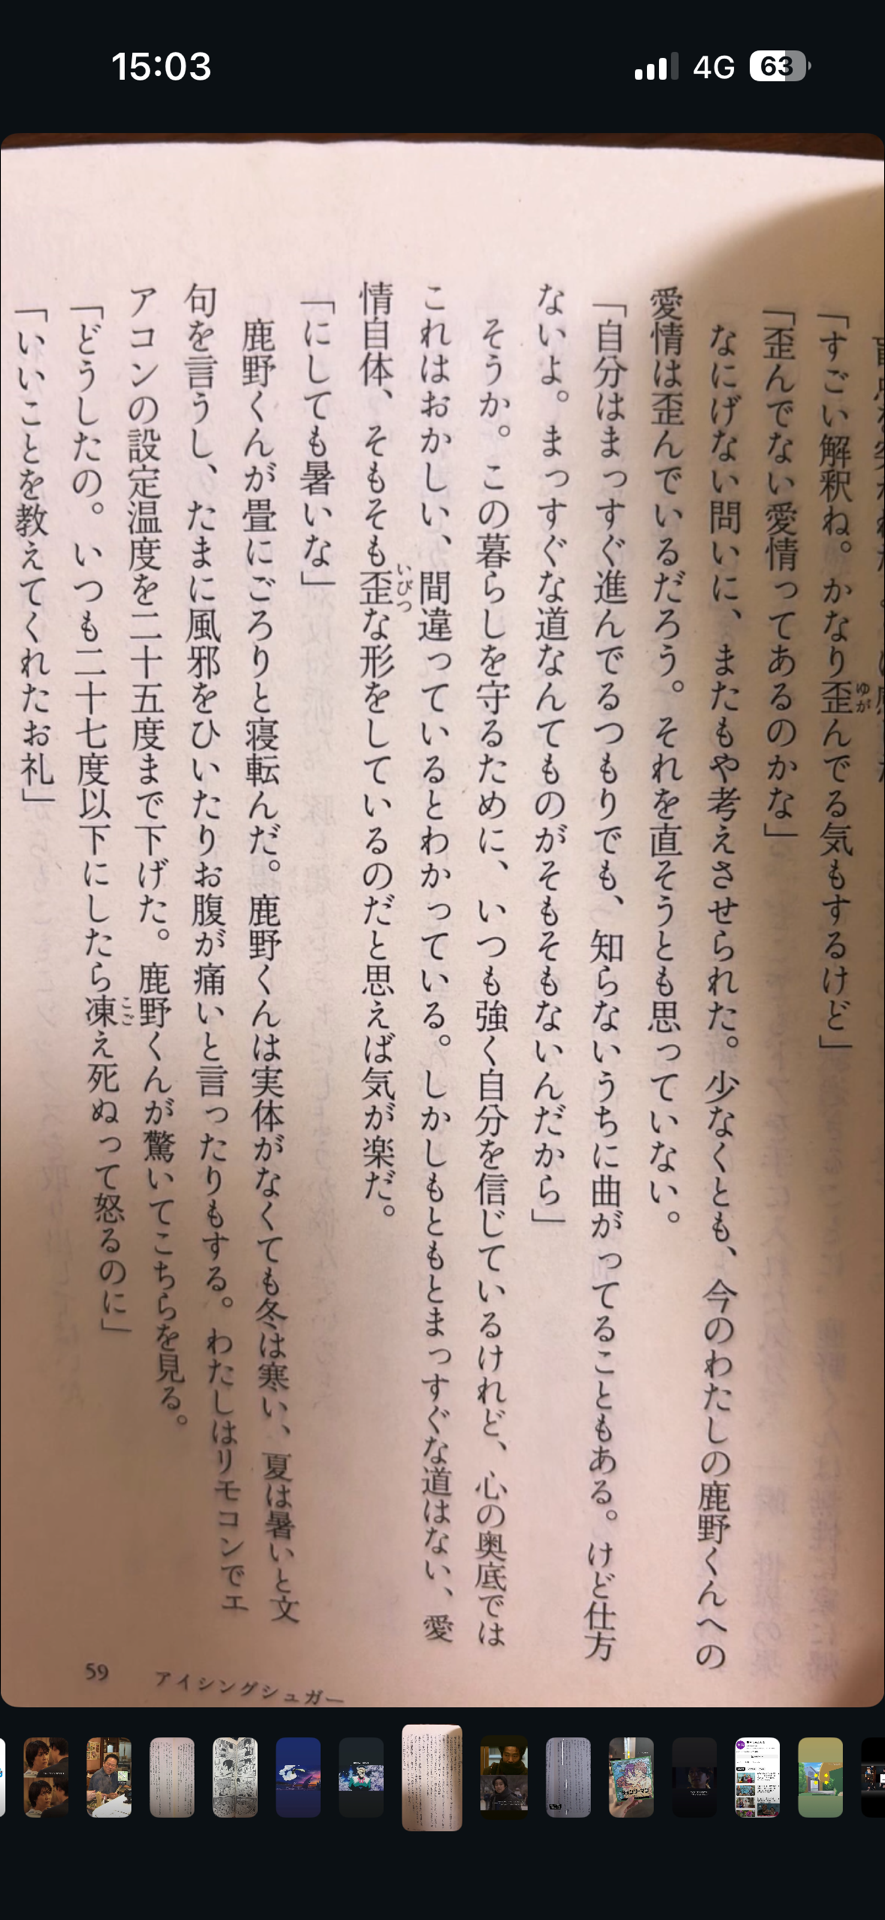 15:03
4G
63
「すごい解釈ね。かなり歪んでる気もするけど」
ゆが
「歪んでない愛情ってあるのかな」
なにげない問いに、またもや考えさせられた。少なくとも、今のわたしの鹿野くんへの
愛情は歪んでいるだろう。それを直そうとも思っていない。
「自分はまっすぐ進んでるつもりでも、知らないうちに曲がってることもある。けど仕方
ないよ。まっすぐな道なんてものがそもそもないんだから」
そうか。この暮らしを守るために、いつも強く自分を信じているけれど、心の奥底では
これはおかしい、間違っているとわかっている。しかしもともとまっすぐな道はない、愛
情自体、そもそも歪な形をしているのだと思えば気が楽だ。
いびつ
「にしても暑いな」
鹿野くんが畳にごろりと寝転んだ。鹿野くんは実体がなくても冬は寒い、夏は暑いと文
句を言うし、たまに風邪をひいたりお腹が痛いと言ったりもする。わたしはリモコンでエ
アコンの設定温度を二十五度まで下げた。鹿野くんが驚いてこちらを見る。
「どうしたの。いつも二十七度以下にしたら凍え死ぬって怒るのに」
こご
「いいことを教えてくれたお礼」
59
アイシングシュガー